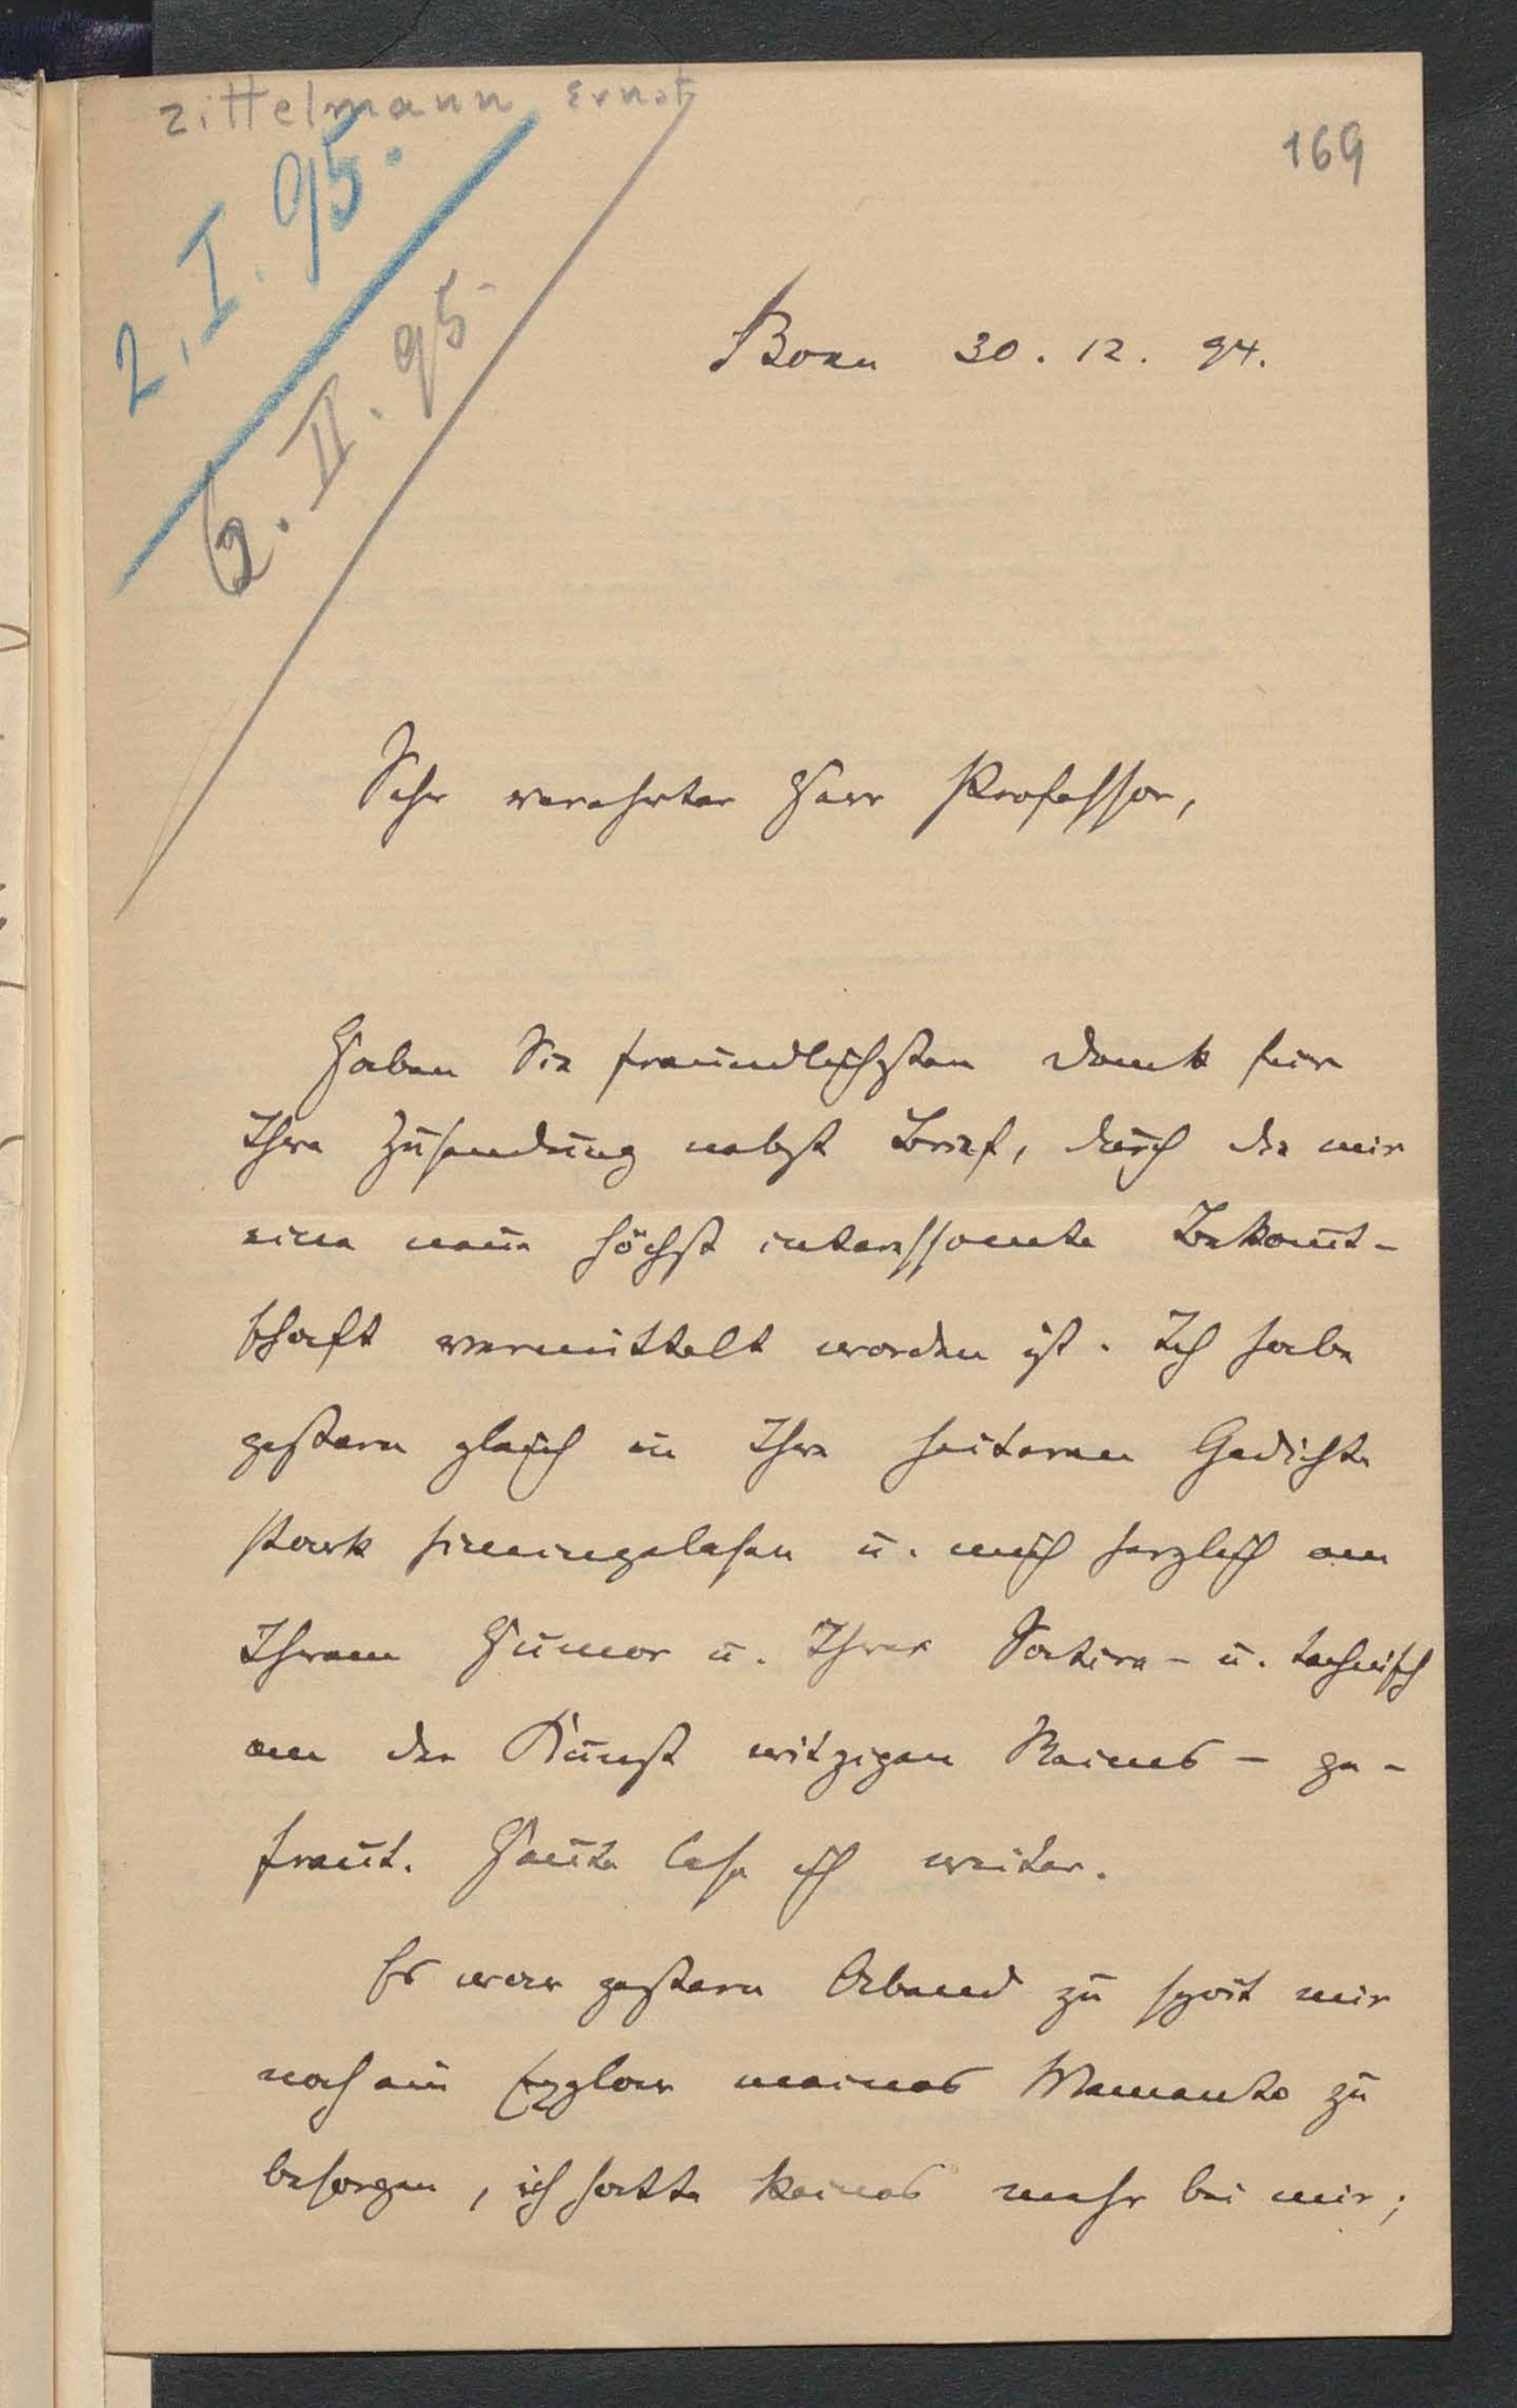 Zittelmann Ernst
169
2. I. 95.
6. II. 95
Bonn 30. 12. 94.
Sehr verehrter Herr Professor,
Haben Sie freundlichsten Dank für
Ihre Zusendung nebst Brief, durch die mir
eine neue höchst interessante Bekannt-
schaft vermittelt worden ist. Ich habe
gestern gleich in Ihre heiteren Gedichte
stark hineingelesen u. mich herzlich an
Ihrem Humor u. Ihrer Satire - u. technisch
an der Kunst witzigen Reims - ge-
freut. Heute lese ich weiter.
Es war gestern Abend zu spät mir
noch ein Explar meines Memento zu
besorgen, ich hatte keines mehr bei mir;